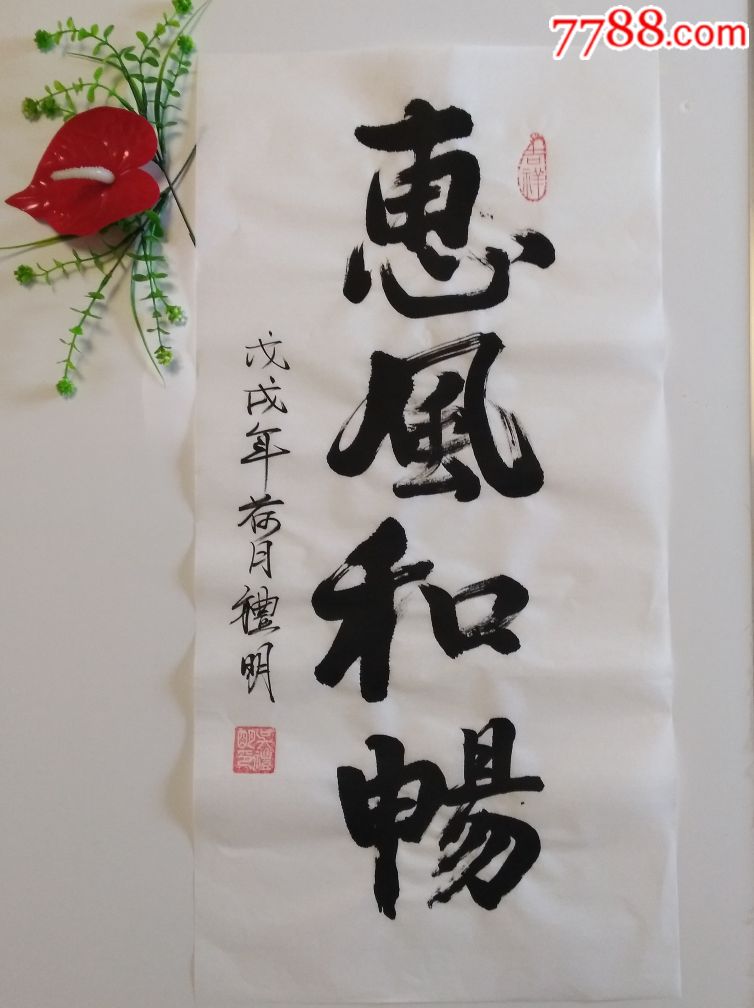 7788.com
吉祥
惠風和暢
戊戌年荷月禮明